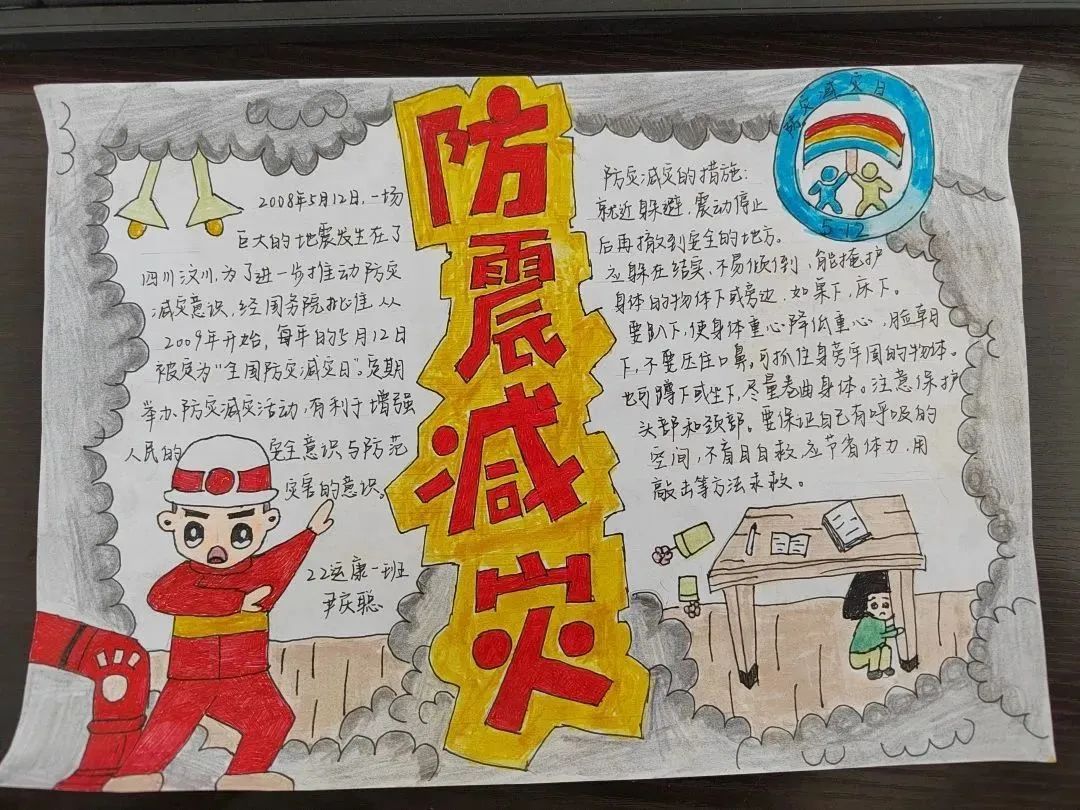 防震减灾
2008年5月12日,一场
巨大的地震发生在了
四川汶川,为了进一步推动防灾
减灾意识,经国务院批准,从
2009年开始,每年的5月12日
被定为“全国防灾减灾日”。定期
举办防灾减灾活动,有利于增强
人民的安全意识与防范
灾害的意识。
22运康一班
尹庆聪
防灾减灾的措施:
就近躲避,震动停止
后再撤到安全的地方。
应躲在结实、不易倾倒、能掩护
身体的物体下或旁边,如果下,床下。
要趴下,使身体重心降低重心,脸朝
下,不要压住口鼻,可抓住身旁牢固的物体。
也可蹲下或坐下,尽量卷曲身体。注意保护
头部和颈部。要保证自己有呼吸的
空间,不盲目自救,应节省体力,用
敲击等方法求救。
防灾减灾日
5.12